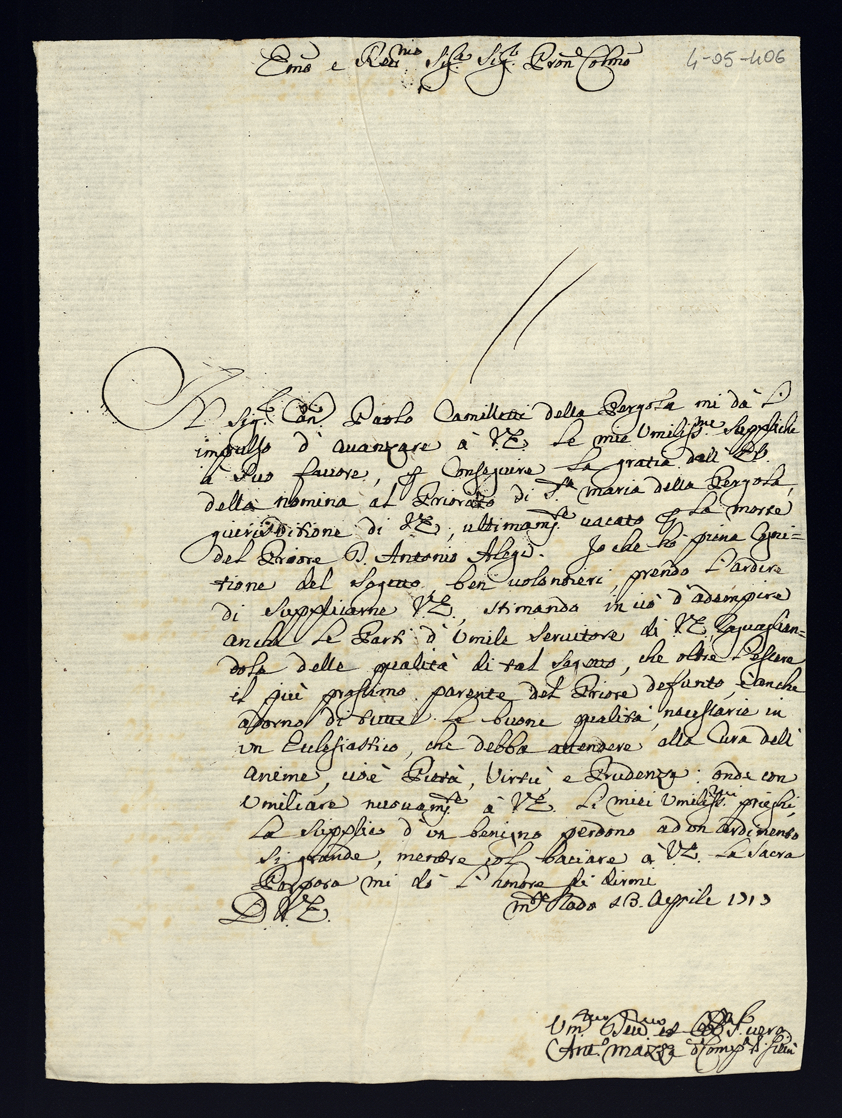 Emo e Revmo Sigr Sigr Pron Colmo
4-05-406
Il Sigr Can. Paolo Camilletti della Pergola mi dà l'
impulso d'avanzare à V.E. le mie umilissme suppliche
à suo favore, p conseguire la gratia dell'
della nomina al Priorato di Sta maria della Pergola,
giurisditione di V.E., ultimamte vacato p la morte
del Priore D. Antonio Alegi. Io che hò piena cogni=
tione del sogetto ben volontieri prendo l'ardire
di supplicarne V.E., stimando in ciò d'adempire
anche le Parti d'umile servitore di V.E. raguaglian=
dola delle qualità di tal sogetto, che oltre l'essere
il più prossimo parente del Priore defunto, è anche
adorno di tutte le buone qualità, necessarie in
un Eclesiastico, che debba attendere alla Cura dell'
anime, cioè Pietà, Virtù e Prudenza: onde con
umiliare nuovamte à V.E. li miei umilissmi prieghi,
la supplico d'un benigno perdono ad un ardimento
si grande, mentre col baciare à V.E. la sacra
Porpora mi dò l'honore di dirmi
D.V.E.
Rado 13 Aprile 1713
Ummo
Anto